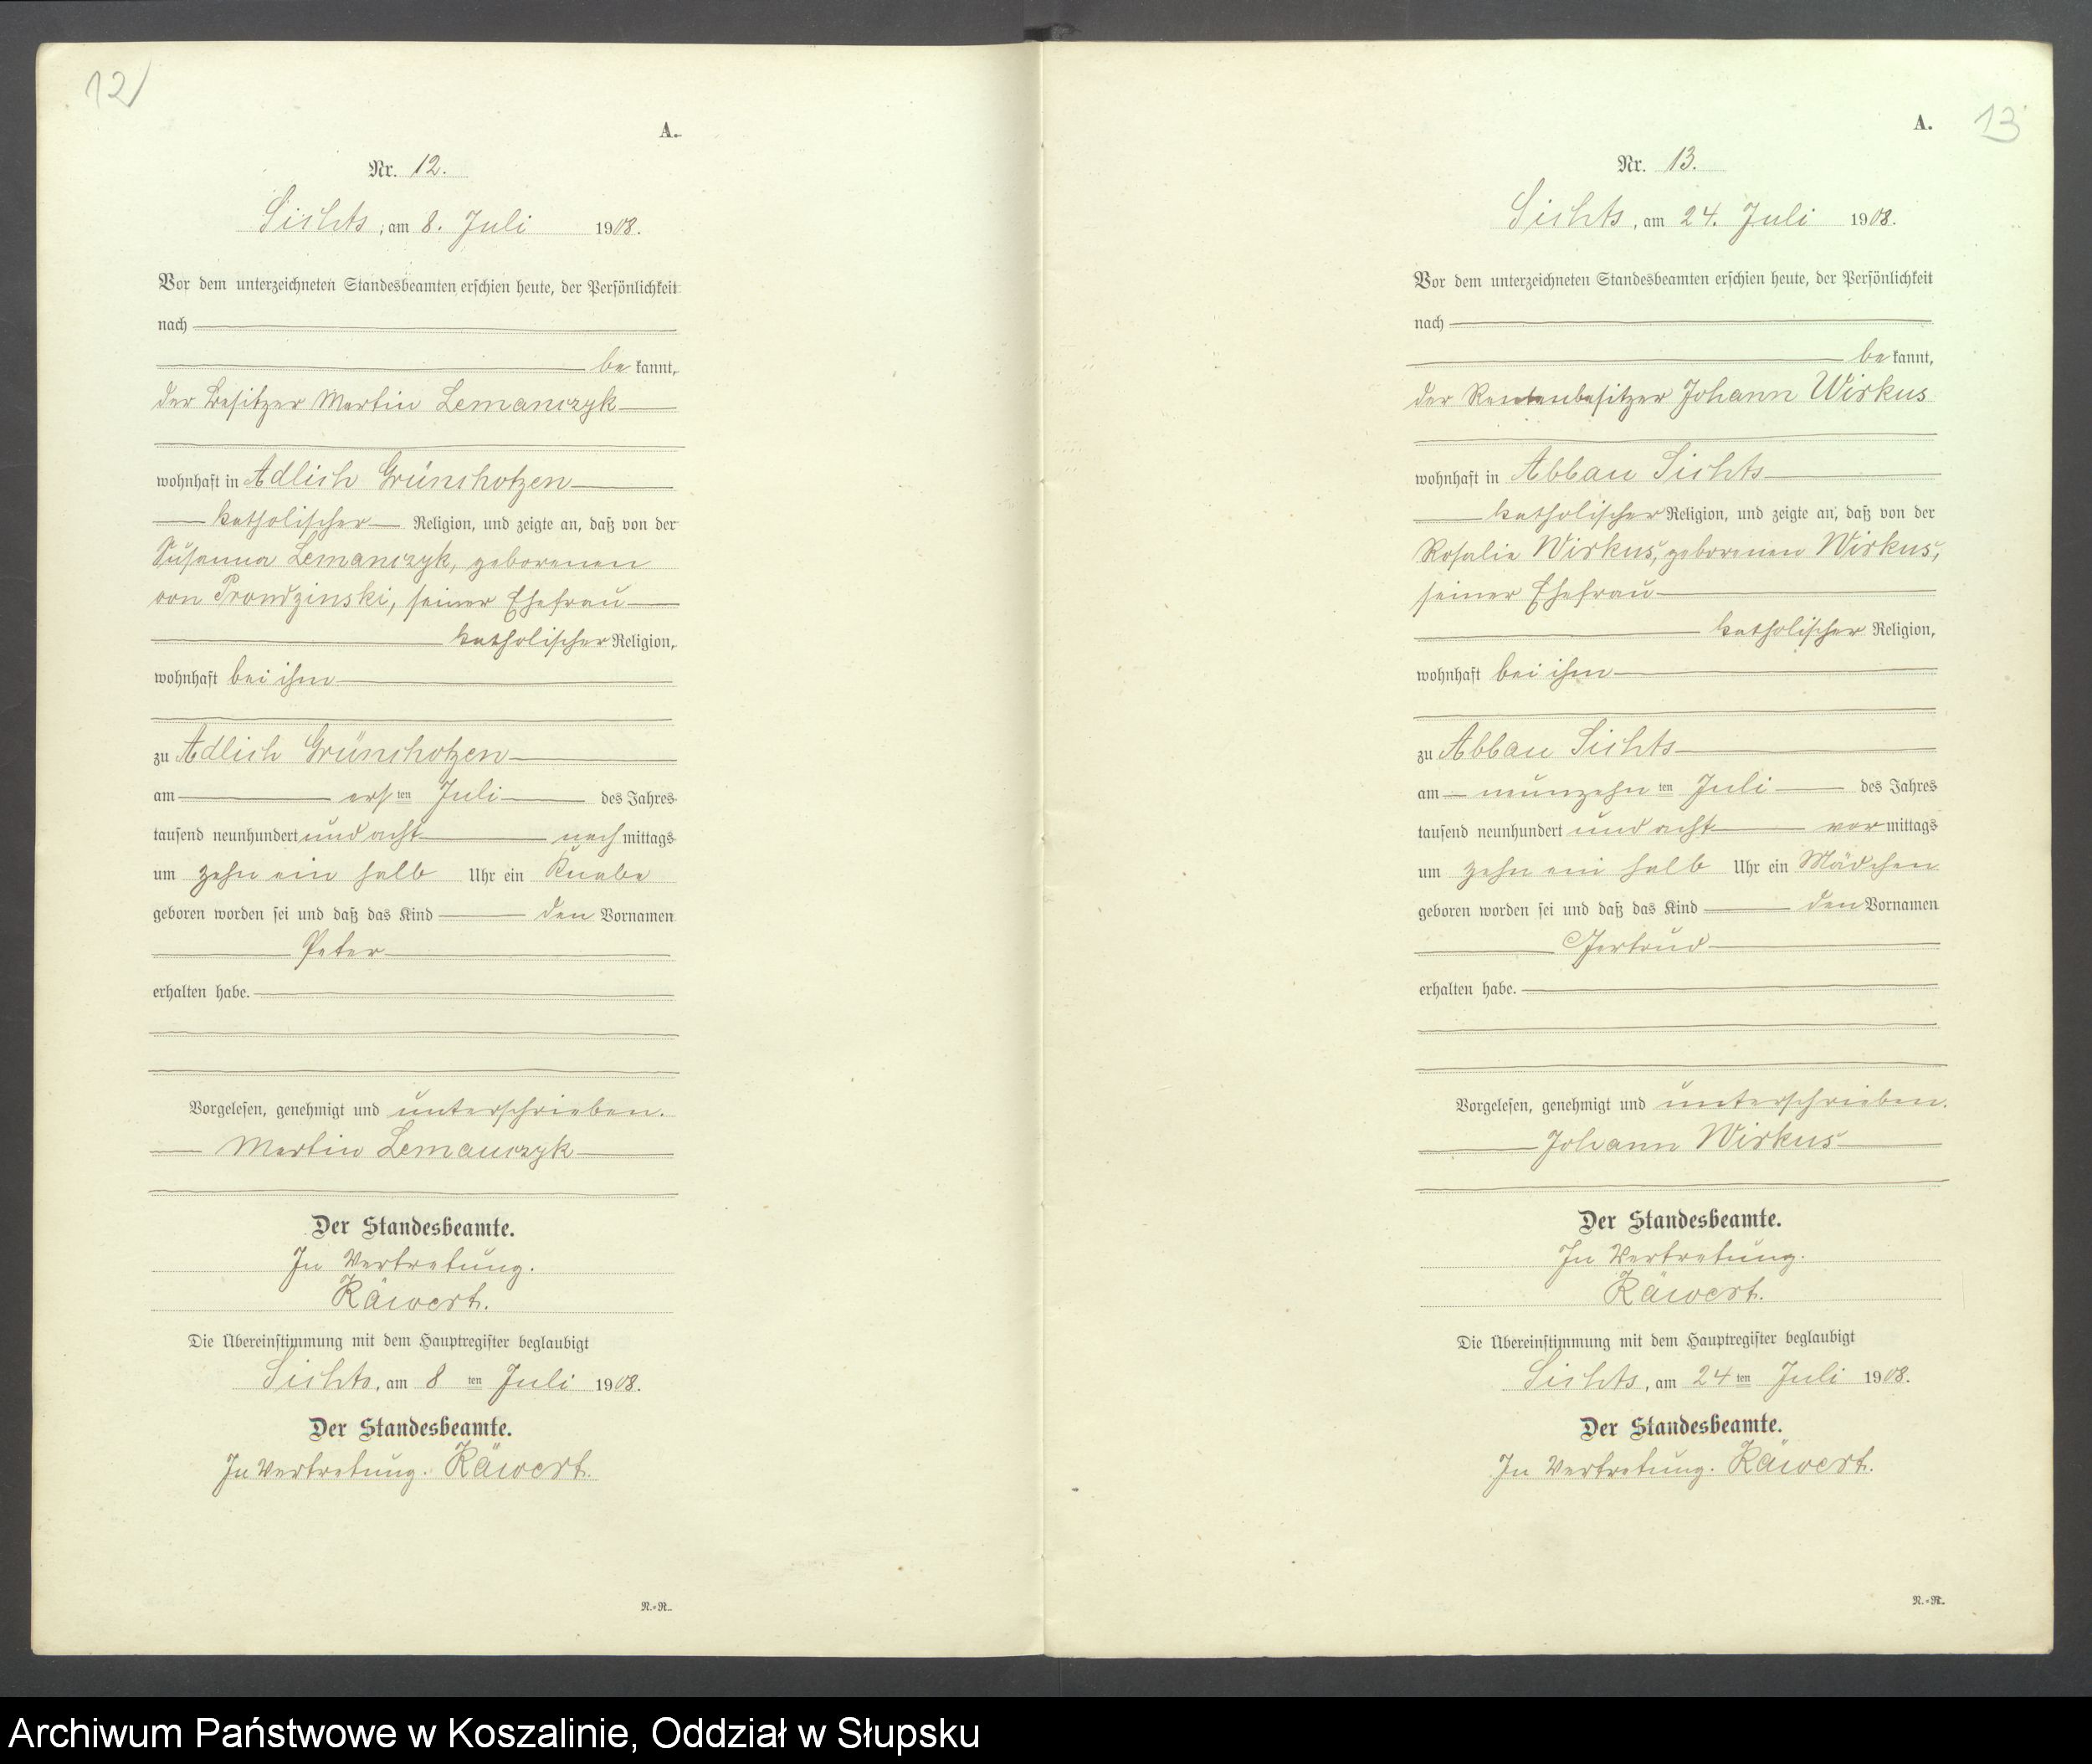 12
A.
Nr. 12.
Sichts, am 8. Juli 1908.
Vor dem unterzeichneten Standesbeamten erschien heute, der Persönlichkeit
nach
be kannt,
der Besitzer Martin Lemanczyk
wohnhaft in Adlich Grünchotzen
katholischer Religion, und zeigte an, daß von der
Susanna Lemanczyk, geborenen
von Prondzinski, seiner Ehefrau
katholischer Religion,
wohnhaft bei ihm
zu Adlich Grünchotzen
am ersten Juli des Jahres
tausend neunhundert und acht nach mittags
um zehn ein halb Uhr ein Knabe
geboren worden sei und daß das Kind den Vornamen
Peter
erhalten habe.
Vorgelesen, genehmigt und unterschrieben.
Martin Lemanczyk
Der Standesbeamte.
In Vertretung.
Räwert.
Die Übereinstimmung mit dem Hauptregister beglaubigt
Sichts, am 8 ten Juli 1908.
Der Standesbeamte.
In Vertretung. Räwert.
R.=R.
13
A.
Nr. 13.
Sichts, am 24. Juli 1908.
Vor dem unterzeichneten Standesbeamten erschien heute, der Persönlichkeit
nach
be kannt,
der Rentenbesitzer Johann Wirkus
wohnhaft in Abbau Sichts
katholischer Religion, und zeigte an, daß von der
Rosalie Wirkus, geborenen Wirkus,
seiner Ehefrau
katholischer Religion,
wohnhaft bei ihm
zu Abbau Sichts
am neunzehn ten Juli des Jahres
tausend neunhundert und acht vor mittags
um zehn ein halb Uhr ein Mädchen
geboren worden sei und daß das Kind den Vornamen
Gertrud
erhalten habe.
Vorgelesen, genehmigt und unterschrieben.
Johann Wirkus
Der Standesbeamte.
In Vertretung.
Räwert.
Die Übereinstimmung mit dem Hauptregister beglaubigt
Sichts, am 24 ten Juli 1908.
Der Standesbeamte.
In Vertretung. Räwert.
R.=R.
Archiwum Państwowe w Koszalinie, Oddział w Słupsku